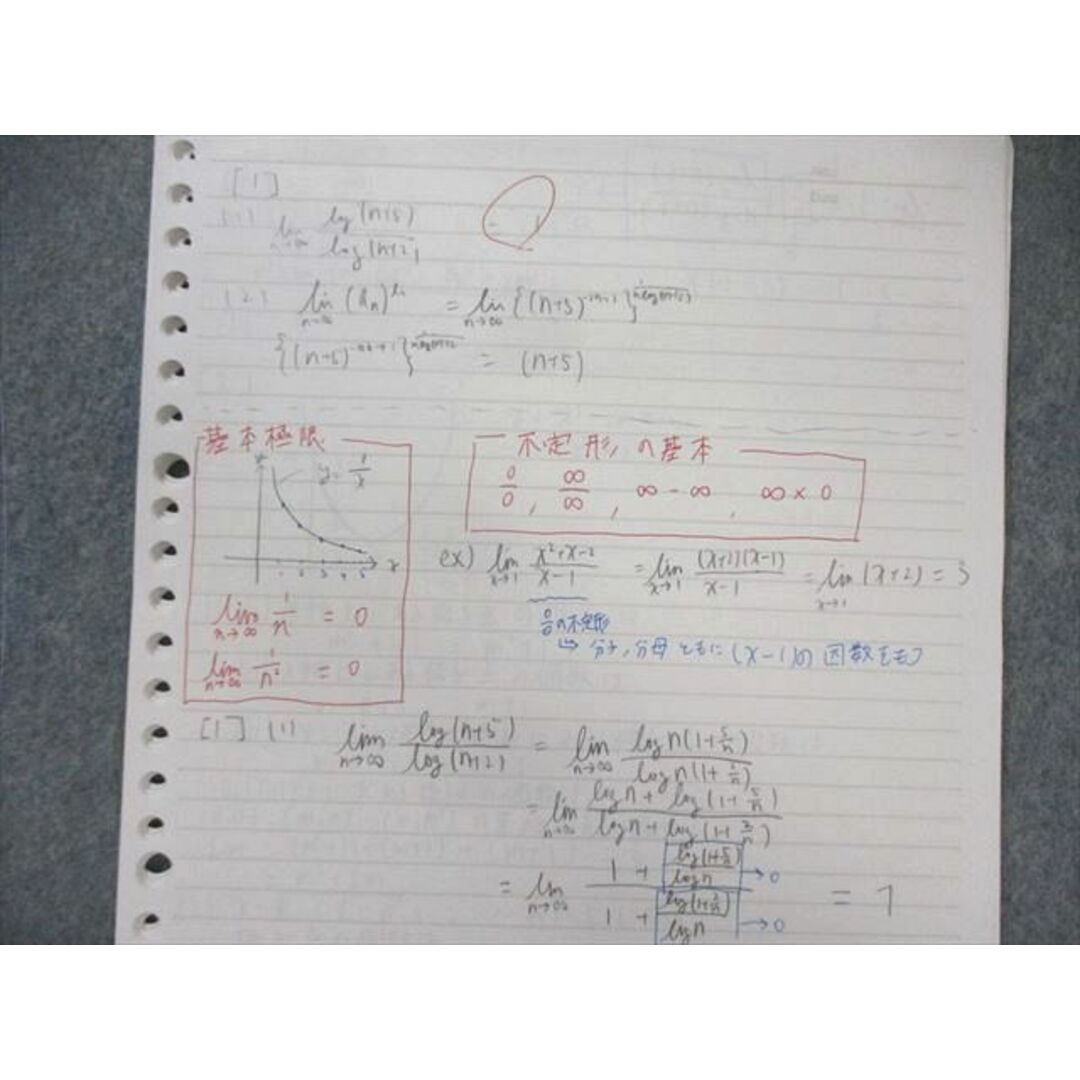 [1]
(1) lim n→∞ log(n+5) / log(n+2)
(2) lim n→∞ = lim n→∞ {(n+5)
{(n+5) = (n+5)
基本極限
y = 1/x
x
1 2 3 4 5
lim n→∞ 1/n = 0
lim n→∞ 1/n² = 0
不定形の基本
0/0 , ∞/∞ , ∞-∞ , ∞×0
ex) lim x→1 x²+x-2 / x-1 = lim x→1 (x+2)(x-1) / x-1 = lim x→1 (x+2) = 3
0/0の不定形
↳ 分子,分母ともに(x-1)の因数をもつ
[1] (1) lim n→∞ log(n+5) / log(n+2) = lim n→∞ log n(1+5/n) / log n(1+2/n)
= lim n→∞ log n + log(1+5/n) / log n + log(1+2/n)
= lim n→∞ 1 + log(1+5/n)/log n →0 / 1 + log(1+2/n)/log n →0 = 1